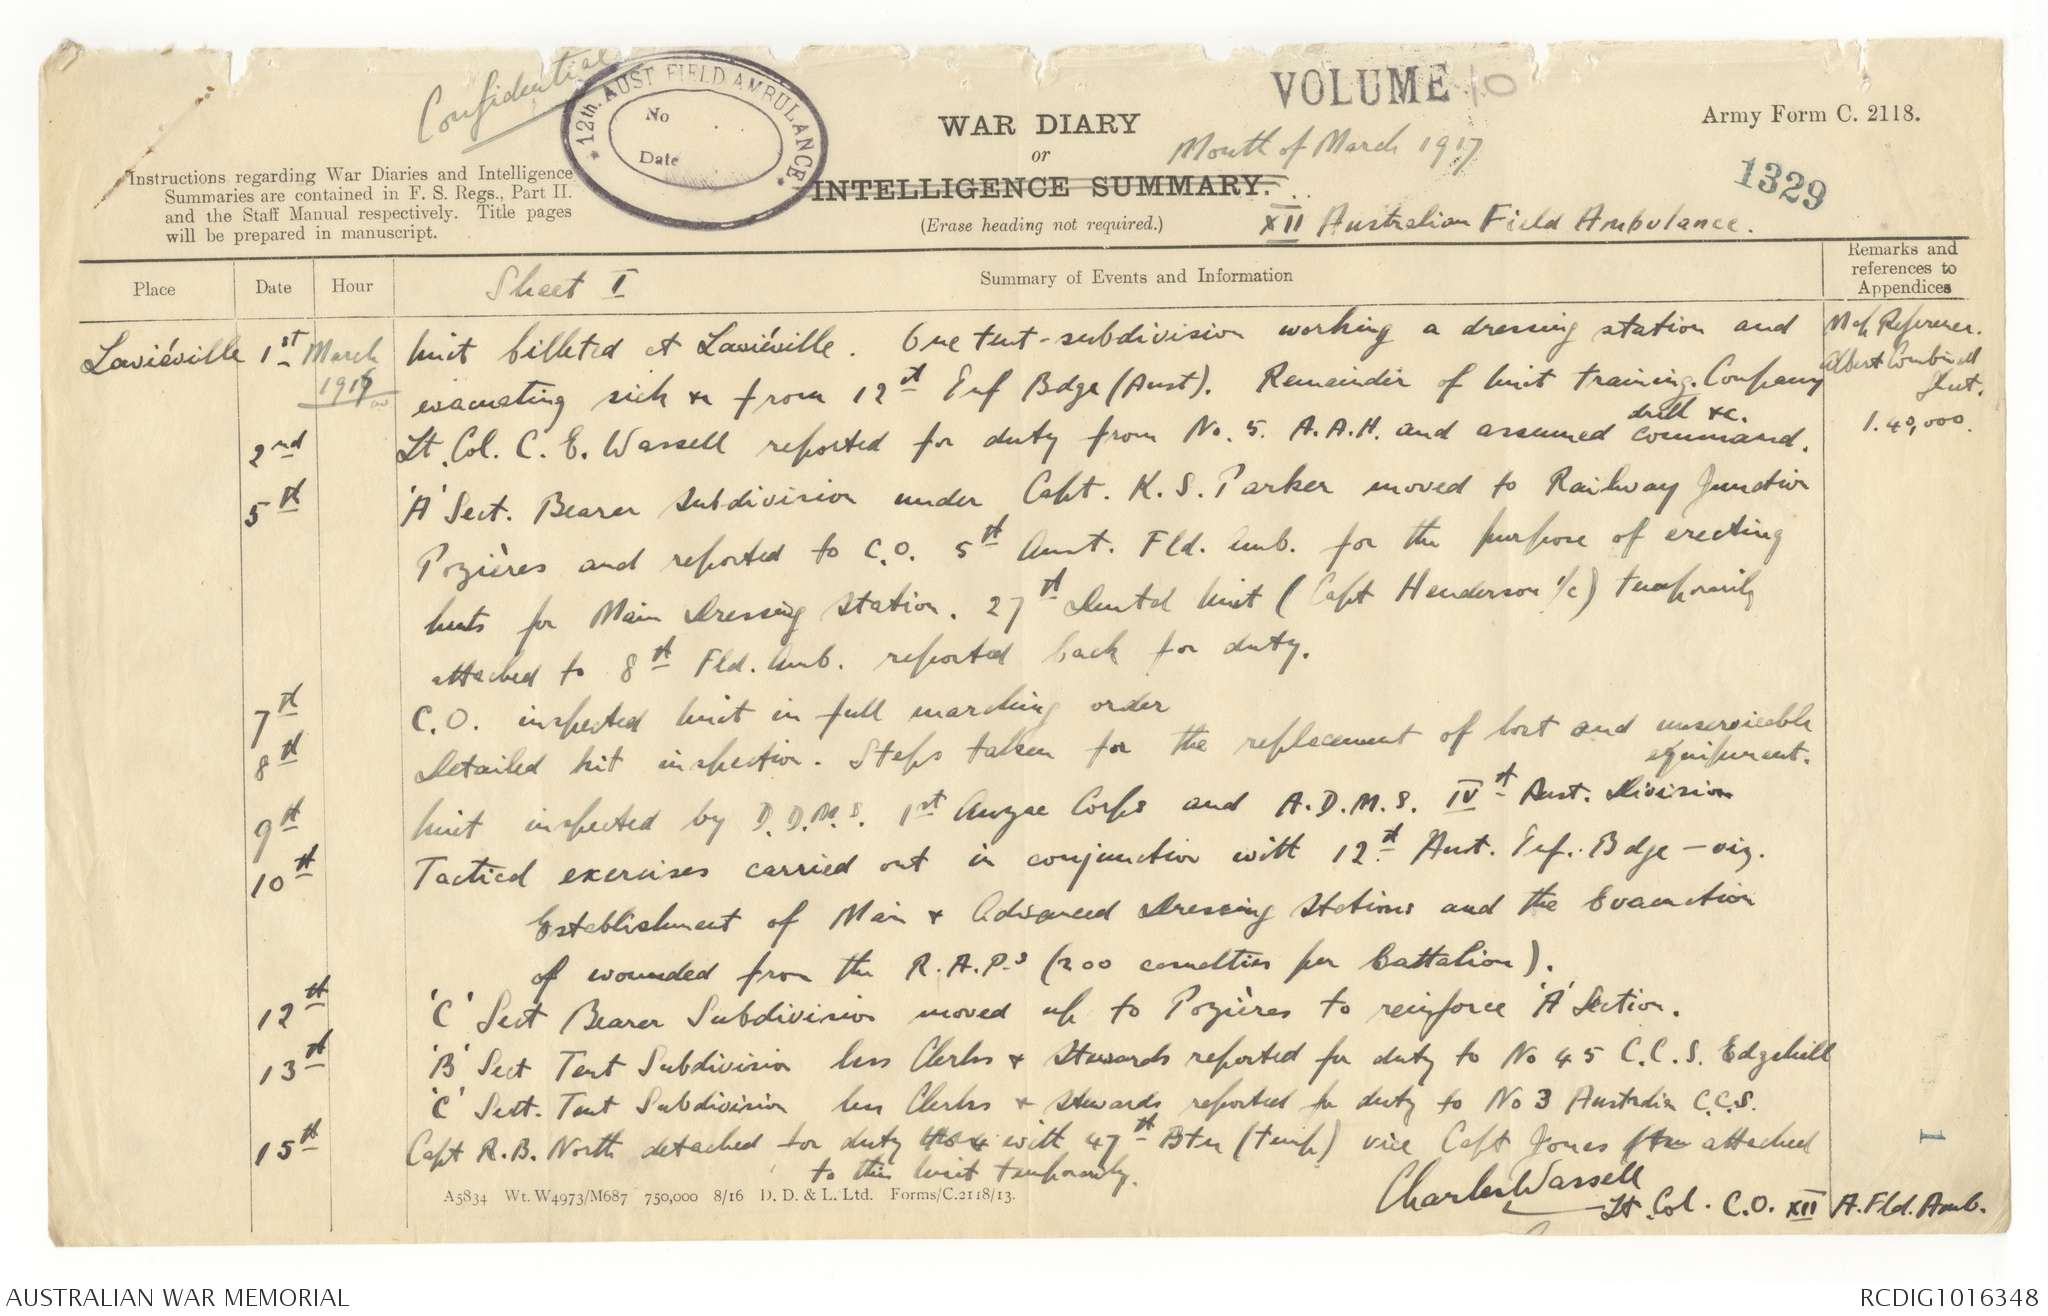 Confidential
12th. AUST FIELD AMBULANCE
No
Date
VOLUME 10
WAR DIARY
or
Month of March 1917
INTELLIGENCE SUMMARY.
(Erase heading not required.)
XII Australian Field Ambulance.
Army Form C. 2118.
1329
Instructions regarding War Diaries and Intelligence
Summaries are contained in F. S. Regs., Part II.
and the Staff Manual respectively. Title pages
will be prepared in manuscript.
Place Date Hour Sheet I Summary of Events and Information Remarks and references to Appendices
Laviéville 1st March Unit billeted at Laviéville. One tent-subdivision working a dressing station and Map Reference.
1917 evacuating sick &c from 12th Inf Bdge (Aust). Remainder of Unit training. Company Albert Combined
drill &c. Sheet.
2nd Lt. Col. C. E. Wassell reported for duty from No. 5. A.A.H. and assumed command. 1.40,000.
5th 'A' Sect. Bearer Subdivision under Capt. K. S. Parker moved to Railway Junction
Pozières and reported to C.O. 5th Aust. Fld. Amb. for the purpose of erecting
huts for Main Dressing Station. 27th Dental Unit (Capt Henderson i/c) temporarily
attached to 8th Fld. Amb. reported back for duty.
7th C.O. inspected Unit in full marching order
8th Detailed kit inspection. Steps taken for the replacement of lost and unserviceable
equipment.
9th Unit inspected by D.D.M.S. 1st Anzac Corps and A.D.M.S. IVth Aust. Division
10th Tactical exercises carried out in conjunction with 12th Aust. Inf. Bdge – viz.
Establishment of Main & Advanced Dressing Stations and the Evacuation
of wounded from the R.A.P.s (200 casualties per Battalion).
12th 'C' Sect Bearer Subdivision moved up to Pozières to reinforce 'A' Section.
13th 'B' Sect Tent Subdivision less Clerks & Stewards reported for duty to No 45 C.C.S. Edgehill
'C' Sect. Tent Subdivision less Clerks & Stewards reported for duty to No 3 Australian C.C.S.
15th Capt R.B. North detached for duty with 47th Btn (temp) vice Capt Jones attached
to this Unit temporarily.
Charles Wassell
Lt. Col. C.O. XII A. Fld. Amb.
A5834 Wt. W4973/M687 750,000 8/16 D. D. & L. Ltd. Forms/C.2118/13.
1
AUSTRALIAN WAR MEMORIAL
RCDIG1016348